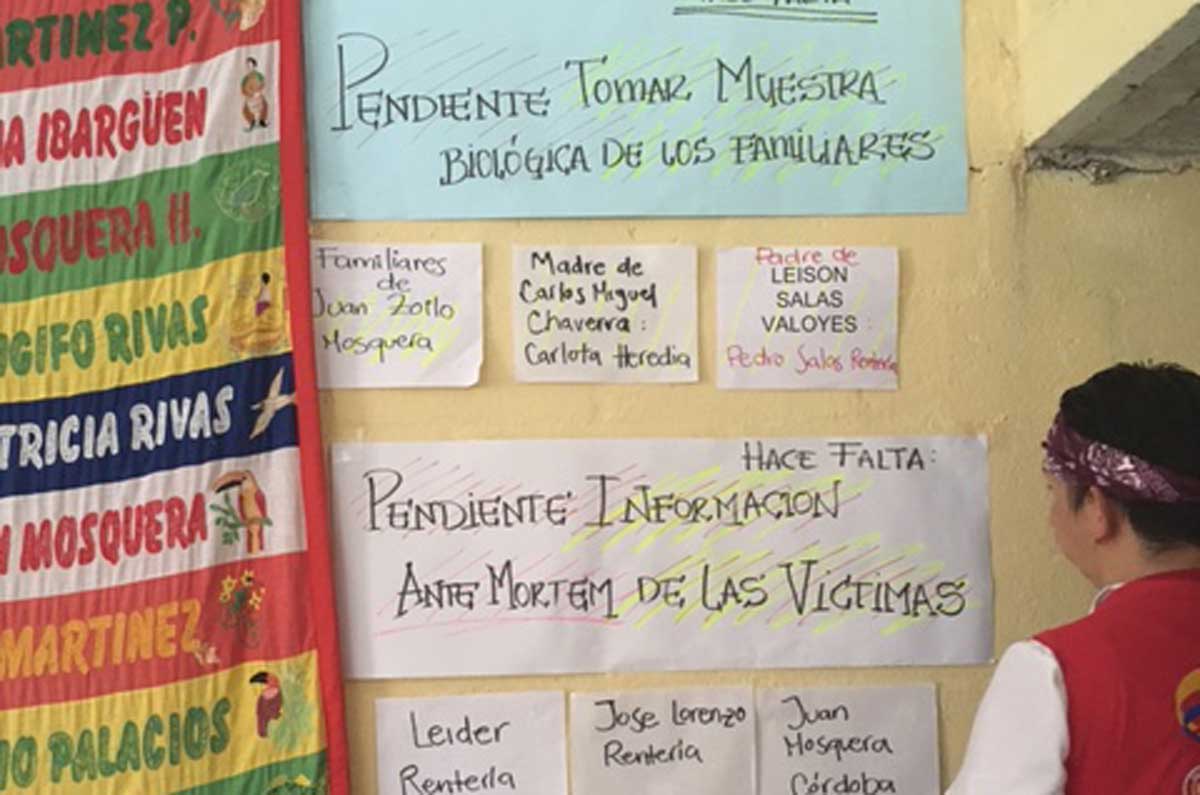 RTINEZ P.
A IBARGÜEN
SQUERA H.
GIFO RIVAS
TRICIA RIVAS
MOSQUERA
MARTINEZ
IO PALACIOS
PENDIENTE TOMAR MUESTRA
BIOLÓGICA DE LOS FAMILIARES
Familiares
de
Juan Zoilo
Mosquera
Madre de
Carlos Miguel
Chaverra:
Carlota Heredia
Padre de
LEISON
SALAS
VALOYES:
Pedro Salas Rentería
HACE FALTA:
PENDIENTE INFORMACION
ANTE MORTEM DE LAS VÍCTIMAS
Leider
Rentería
Jose Lorenzo
Rentería
Juan
Mosquera
Córdoba